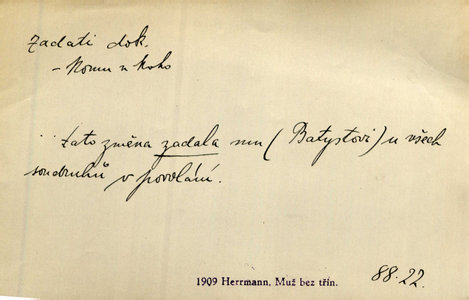 zadati dok.
- komu u koho
.. tato změna zadala mu (Batystovi) u všech
soudruhů v povolání.
1909 Herrmann, Muž bez třín. 88.22.